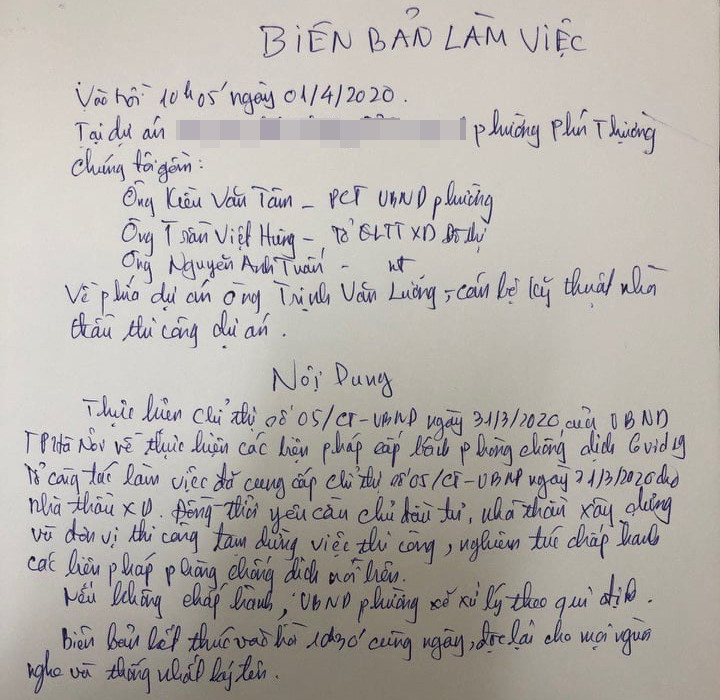 BIÊN BẢN LÀM VIỆC
Vào hồi 10h05' ngày 01/4/2020.
Tại dự án phường Phú Thượng
Chúng tôi gồm:
Ông Kiều Văn Tâm - PCT UBND phường
Ông Trần Việt Hưng - Tổ QLTTXD Đô thị
Ông Nguyễn Anh Tuấn - nt
Về phía dự án ông Trịnh Văn Lương, cán bộ kỹ thuật nhà
thầu thi công dự án.
Nội Dung
Thực hiện chỉ thị số 05/CT-UBND ngày 31/3/2020 của UBND
TP Hà Nội về thực hiện các biện pháp cấp bách phòng chống dịch Covid 19
Tổ công tác làm việc đã cung cấp chỉ thị số 05/CT-UBND ngày 31/3/2020 cho
nhà thầu XD. Đồng thời yêu cầu chủ đầu tư, nhà thầu xây dựng
và đơn vị thi công tạm dừng việc thi công, nghiêm túc chấp hành
các biện pháp phòng chống dịch nói trên.
Nếu không chấp hành, UBND phường sẽ xử lý theo qui định.
Biên bản kết thúc vào hồi 10h30' cùng ngày, đọc lại cho mọi người
nghe và thống nhất ký tên.